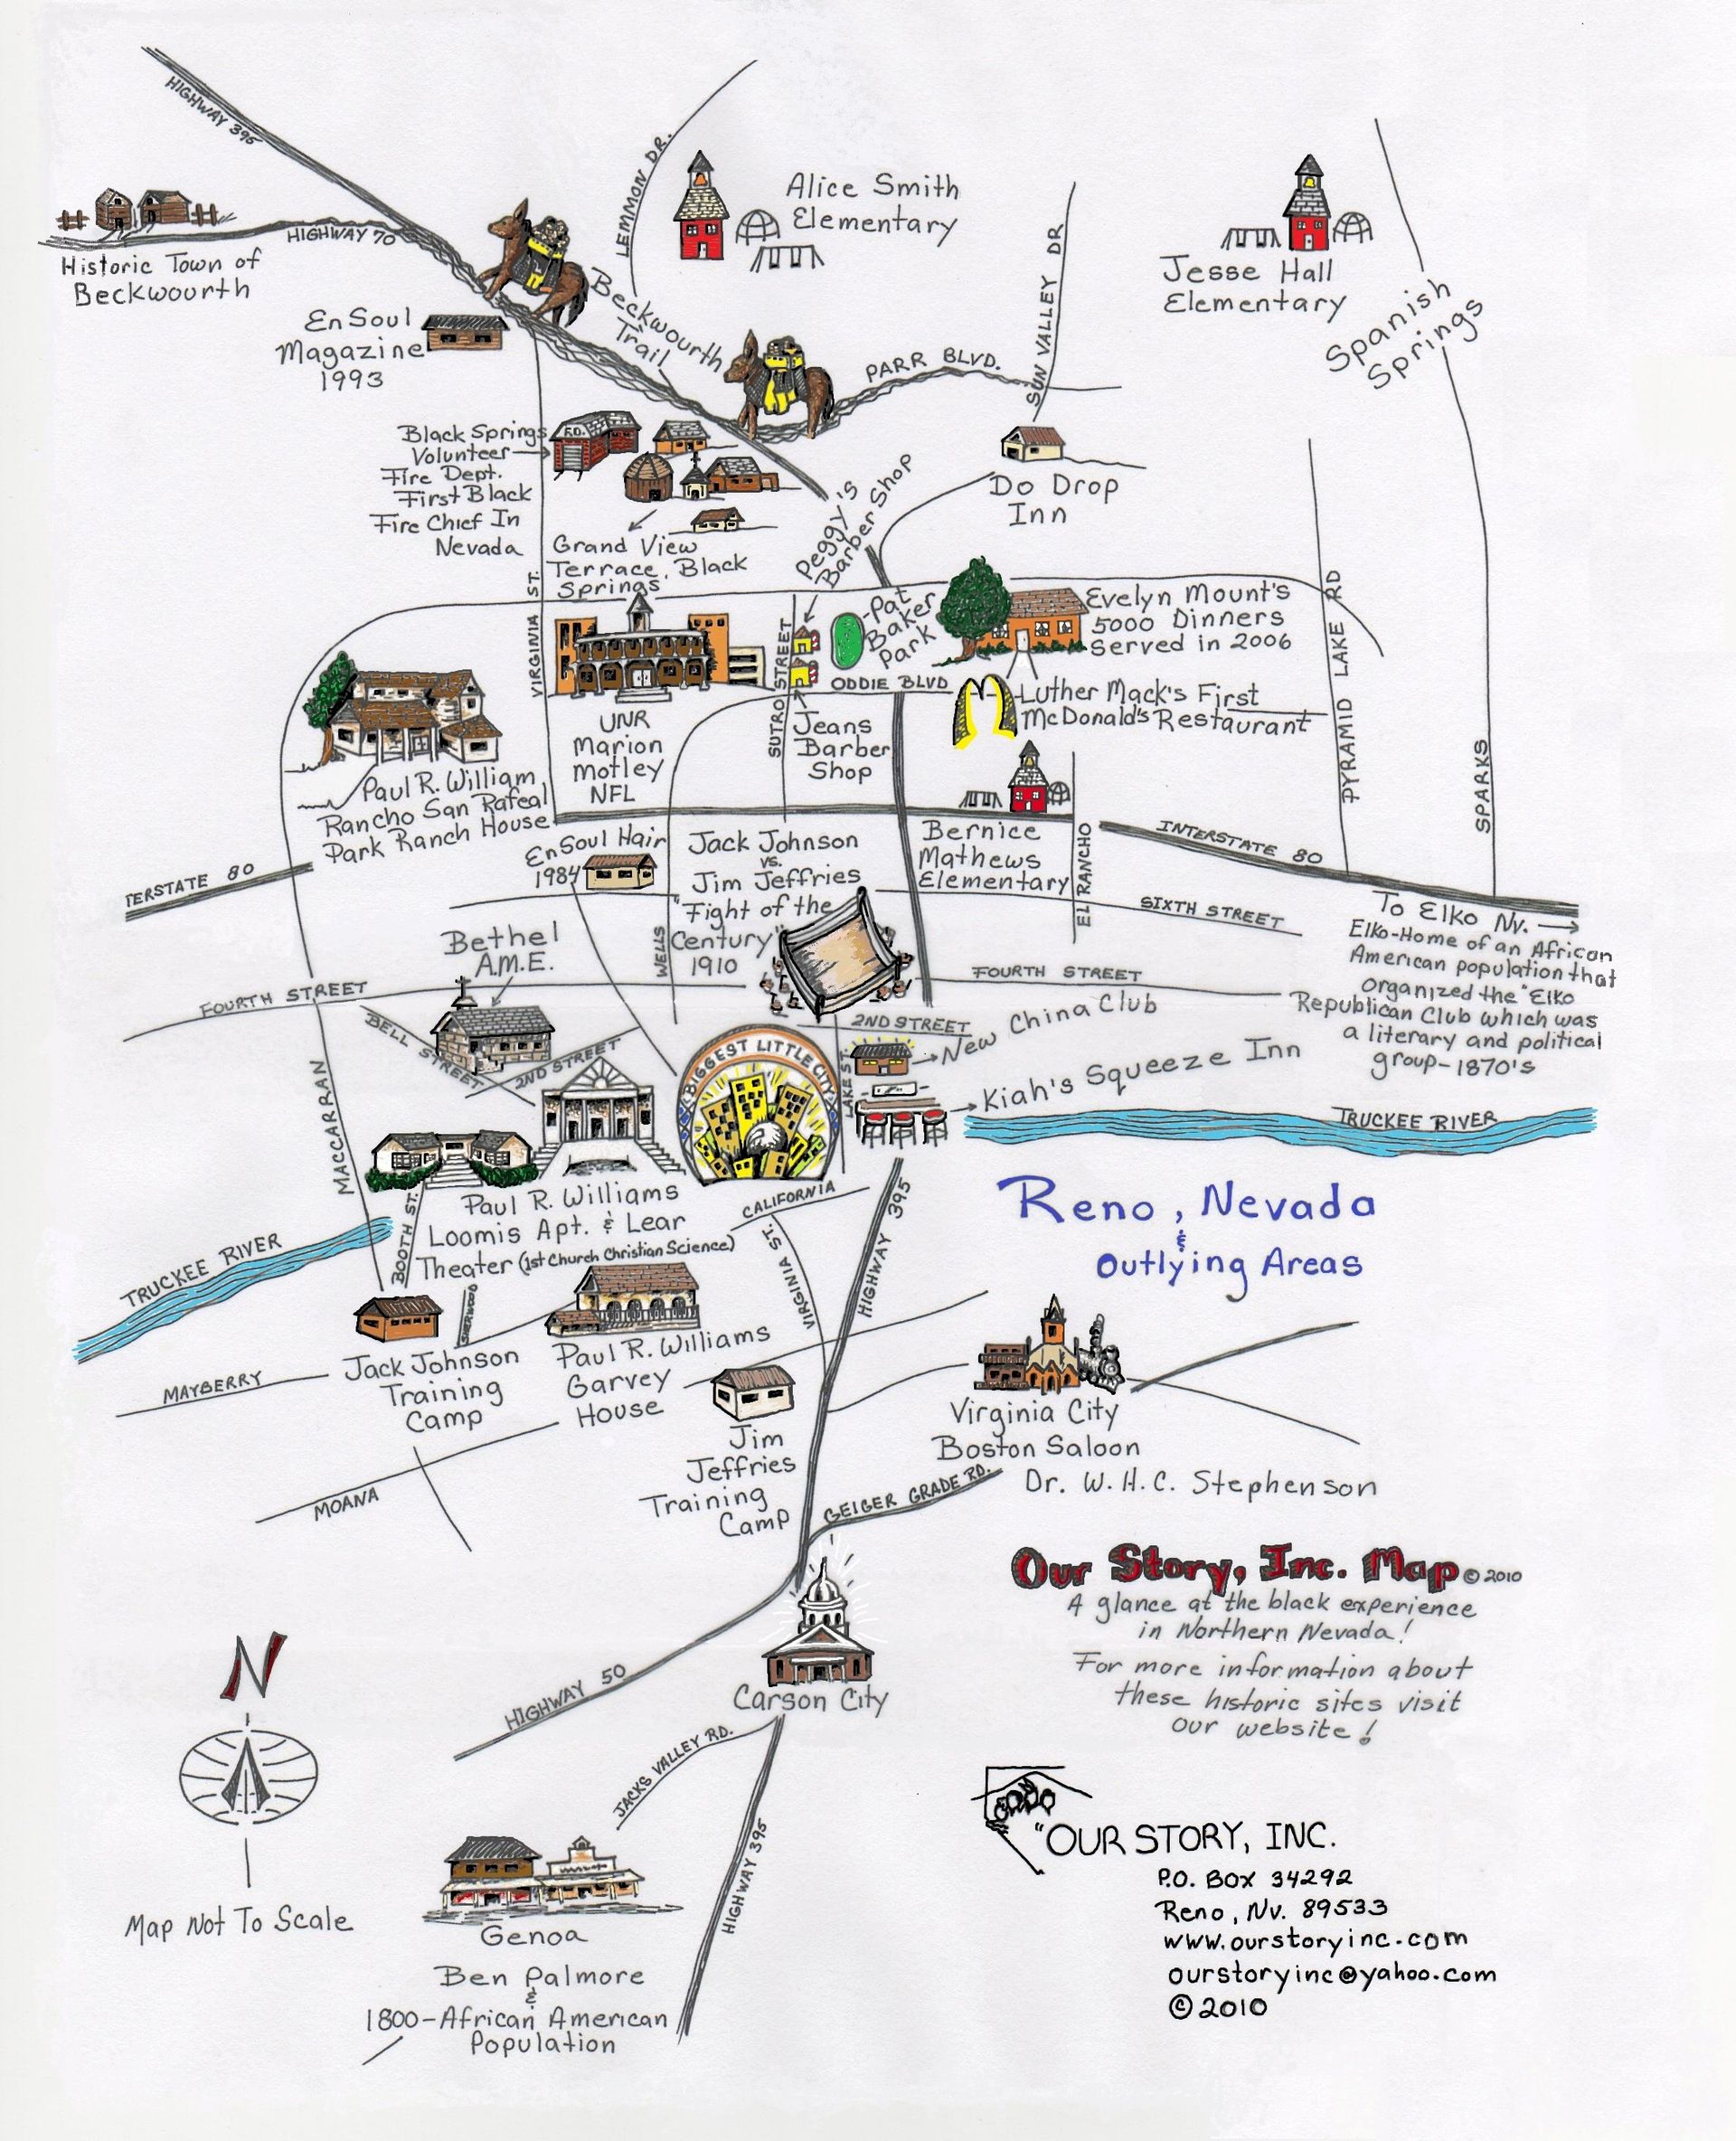 HIGHWAY 395
LEMMON DR.
Alice Smith
Elementary
HIGHWAY 70
Historic Town of
Beckwourth
Beckwourth
Trail
SUN VALLEY DR
Jesse Hall
Elementary
Spanish
Springs
EnSoul
Magazine
1993
PARR BLVD.
Black Springs
Volunteer
Fire Dept.
First Black
Fire Chief In
Nevada
F.D.
Grand View
Terrace, Black
Springs
Peggy's
Barber Shop
Do Drop
Inn
VIRGINIA ST.
SUTRO STREET
Pat
Baker
Park
Evelyn Mount's
5000 Dinners
Served in 2006
PYRAMID LAKE RD
ODDIE BLVD
Luther Mack's First
McDonald's Restaurant
UNR
Marion
Motley
NFL
Jeans
Barber
Shop
SPARKS
Paul R. William
Rancho San Rafeal
Park Ranch House
TERSTATE 80
EnSoul Hair
1984
Jack Johnson
vs.
Jim Jeffries
"Fight of the
Century"
1910
Bernice
Mathews
Elementary
EL RANCHO
INTERSTATE 80
SIXTH STREET
To Elko Nv.
Elko-Home of an African
American population that
organized the "Elko
Republican Club which was
a literary and political
group-1870's
Bethel
A.M.E.
WELLS
FOURTH STREET
FOURTH STREET
BELL STREET
2ND STREET
2ND STREET
New China Club
BIGGEST LITTLE CITY
LAKE ST.
Kiah's Squeeze Inn
TRUCKEE RIVER
MACCARRAN
BOOTH ST.
Paul R. Williams
Loomis Apt. & Lear
Theater (1st Church Christian Science)
CALIFORNIA
VIRGINIA ST.
HIGHWAY 395
Reno, Nevada
&
Outlying Areas
TRUCKEE RIVER
SHERWOOD
MAYBERRY
Jack Johnson
Training
Camp
Paul R. Williams
Garvey
House
Jim
Jeffries
Training
Camp
Virginia City
Boston Saloon
Dr. W. H. C. Stephenson
MOANA
GEIGER GRADE RD.
Our Story, Inc. Map © 2010
A glance at the black experience
in Northern Nevada!
For more information about
these historic sites visit
our website!
N
Map Not To Scale
HIGHWAY 50
Carson City
JACKS VALLEY RD.
HIGHWAY 395
Genoa
Ben Palmore
&
1800-African American
Population
"OUR STORY, INC.
P.O. BOX 34292
Reno, Nv. 89533
www.ourstoryinc.com
ourstoryinc@yahoo.com
© 2010